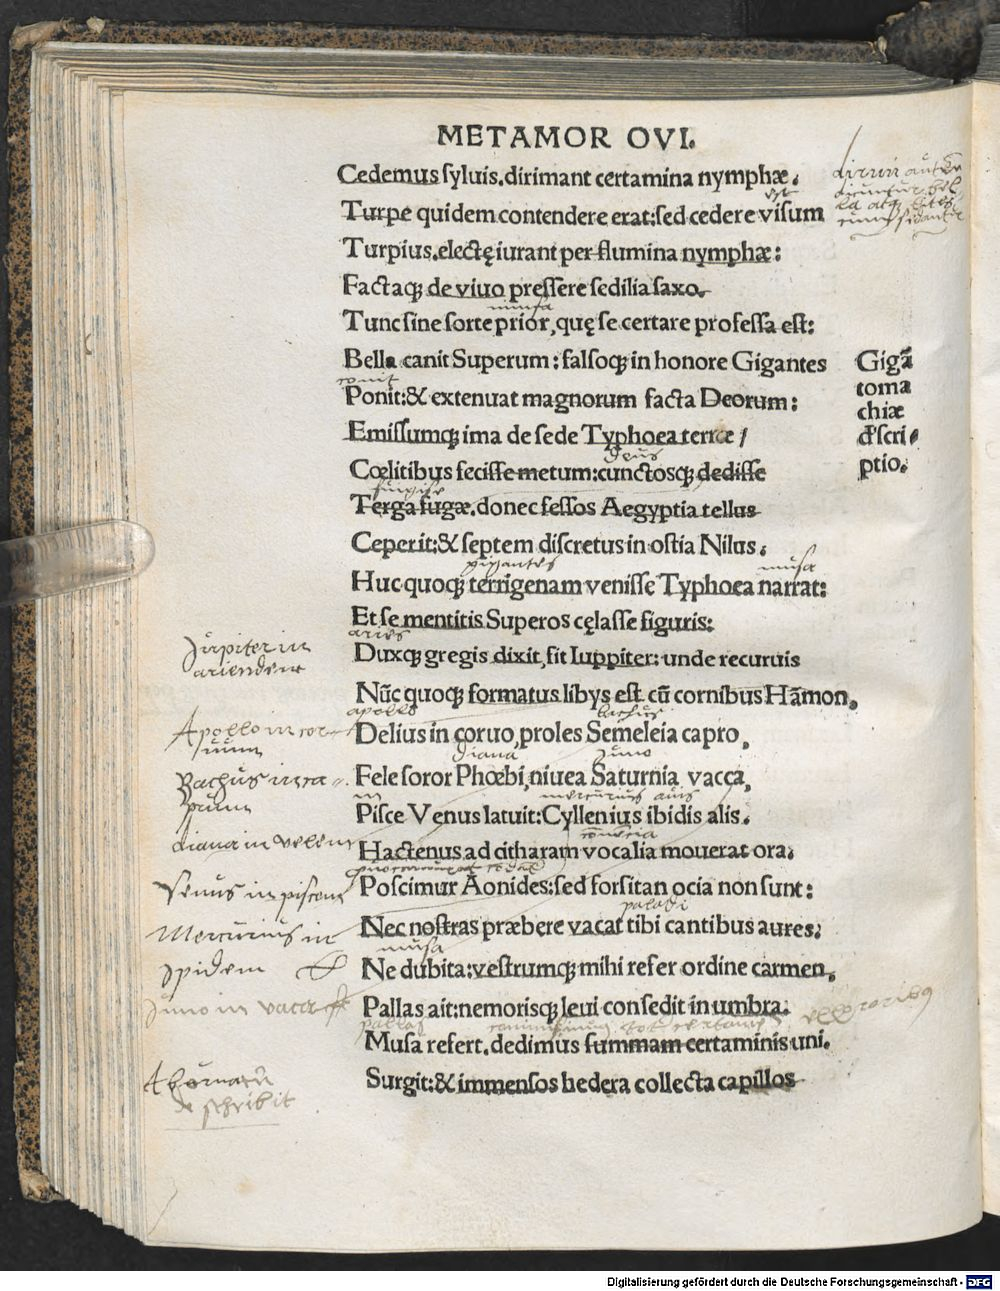 METAMOR OVI.
Cedemus syluis. dirimant certamina nymphæ.
est
Turpe quidem contendere erat: sed cedere visum
Turpius. electę iurant per flumina nymphæ:
Factaq; de viuo pressere sedilia saxo.
Tunc sine sorte prior, quę se certare professa est:
Bella canit Superum: falsoq; in honore Gigantes
Gigã
toma
chiæ
d'scri
ptio.
Ponit: & extenuat magnorum facta Deorum:
Emissumq; ima de sede Typhoea terræ /
deus
Cœlitibus fecisse metum: cunctosq; dedisse
Terga fugæ. donec fessos Aegyptia tellus
Ceperit: & septem discretus in ostia Nilus.
gigantes musa
Huc quoq; terrigenam venisse Typhoea narrat:
Et se mentitis Superos cęlasse figuris:
aries
Duxq; gregis dixit, fit Iuppiter: unde recuruis
Nũc quoq; formatus libys est cũ cornibus Hãmon.
apollo bachus
Delius in coruo, proles Semeleia capro,
diana Juno
Fele soror Phœbi, niuea Saturnia vacca,
in mercurius auis
Pisce Venus latuit: Cyllenius ibidis alis.
Hactenus ad citharam vocalia mouerat ora:
Poscimur Aonides: sed forsitan ocia non sunt:
paladi
Nec nostras præbere vacat tibi cantibus aures:
musa
Ne dubita: vestrumq; mihi refer ordine carmen.
Pallas ait: nemorisq; leui consedit in umbra:
pallas
Musa refert. dedimus summam certaminis uni.
Surgit: & immensos hedera collecta capillos
Jupiter in
arietem
Apollo in cor
uum
Bachus in ca
prum
diana in
Venus in piscem
Mercurius in
Juno in vaca
describit
Digitalisierung gefördert durch die Deutsche Forschungsgemeinschaft - DFG